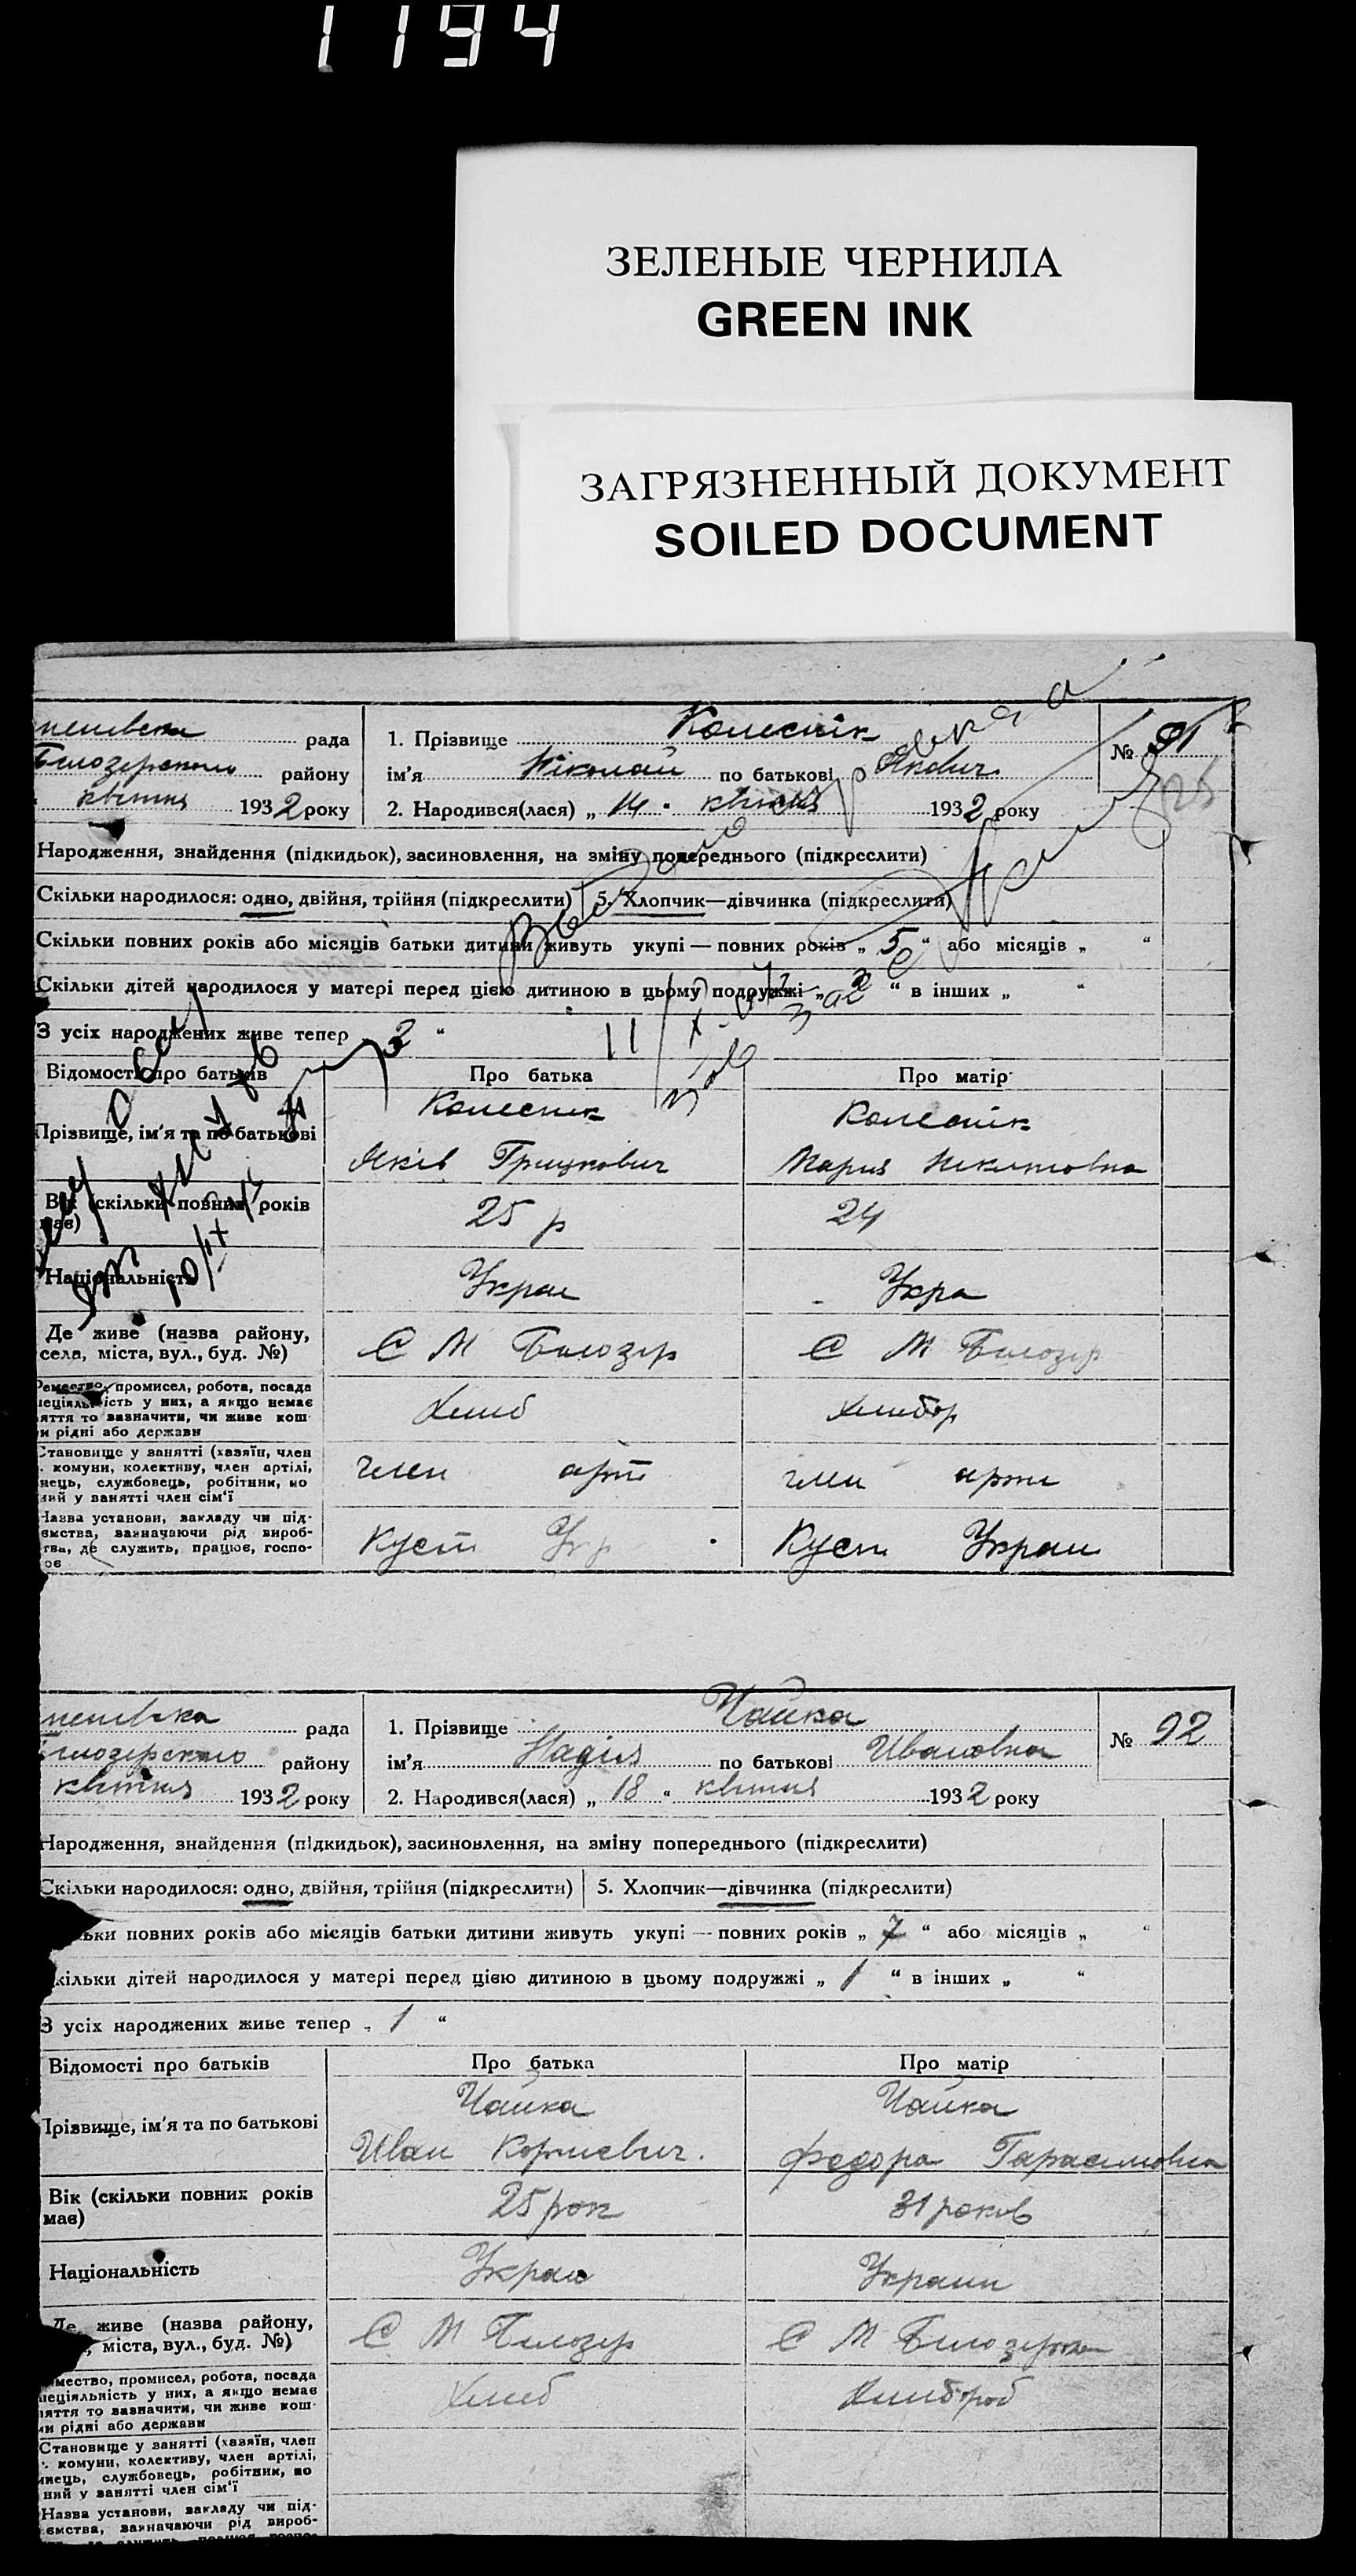 1194
ЗЕЛЕНЫЕ ЧЕРНИЛА
GREEN INK
ЗАГРЯЗНЕННЫЙ ДОКУМЕНТ
SOILED DOCUMENT
рада
району
квітня 1932 року
1. Прізвище Колеснік
ім'я Ніколай по батькові Якович
2. Народився(лася) „ 14 " квітня 1932 року
№ 91
Народження, знайдення (підкидьок), засиновлення, на зміну попереднього (підкреслити)
Скільки народилося: одно, двійня, трійня (підкреслити) 5. Хлопчик—дівчинка (підкреслити)
Скільки повних років або місяців батьки дитини живуть укупі — повних років „ 5 “ або місяців „ “
Скільки дітей народилося у матері перед цією дитиною в цьому подружжі „ 2 “ в інших „ “
З усіх народжених живе тепер „ 2 “
Відомості про батьків Про батька Про матір
Прізвище, ім'я та по батькові
Колесник Колеснік
Яків Грицкович Мария Никитовна
Вік (скільки повних років має) 25 р 24
Національність Украи Укра
Де живе (назва району, С М Білозер С М Білозер
села, міста, вул., буд. №)
промисел, робота, посада
у них, а якщо немає Хлиб Хлибор
то зазначити, чи живе кош
рідні або держави
Становище у занятті (хазяїн, член
комуни, колективу, член артілі, член арт член арти
службовець, робітник, по
у занятті член сім'ї
Назва установи, закладу чи під-
зазначаючи рід вироб- Куст Укр Куст Украи
де служить, працює, госпо-
рада
району
квітня 1932 року
1. Прізвище Чайка
ім'я Надія по батькові Ивановна
2. Народився(лася) „ 18 “ квітня 1932 року
№ 92
Народження, знайдення (підкидьок), засиновлення, на зміну попереднього (підкреслити)
Скільки народилося: одно, двійня, трійня (підкреслити) 5. Хлопчик—дівчинка (підкреслити)
повних років або місяців батьки дитини живуть укупі — повних років „ 7 “ або місяців „ “
кільки дітей народилося у матері перед цією дитиною в цьому подружжі „ 1 “ в інших „ “
З усіх народжених живе тепер „ 1 “
Відомості про батьків Про батька Про матір
Прізвище, ім'я та по батькові
Чайка Чайка
Иван Корниевич. Федора Гарасимовна
Вік (скільки повних років має) 25 рок 31 роков
Національність Украи Украин
Де живе (назва району, С М Білозер С М Білозерка
міста, вул., буд. №)
промисел, робота, посада
у них, а якщо немає Хлиб Хлибороб
то зазначити, чи живе кош-
рідні або держави
Становище у занятті (хазяїн, член
комуни, колективу, член артілі,
службовець, робітник, по
у занятті член сім'ї
Назва установи, закладу чи під-
зазначаючи рід вироб-